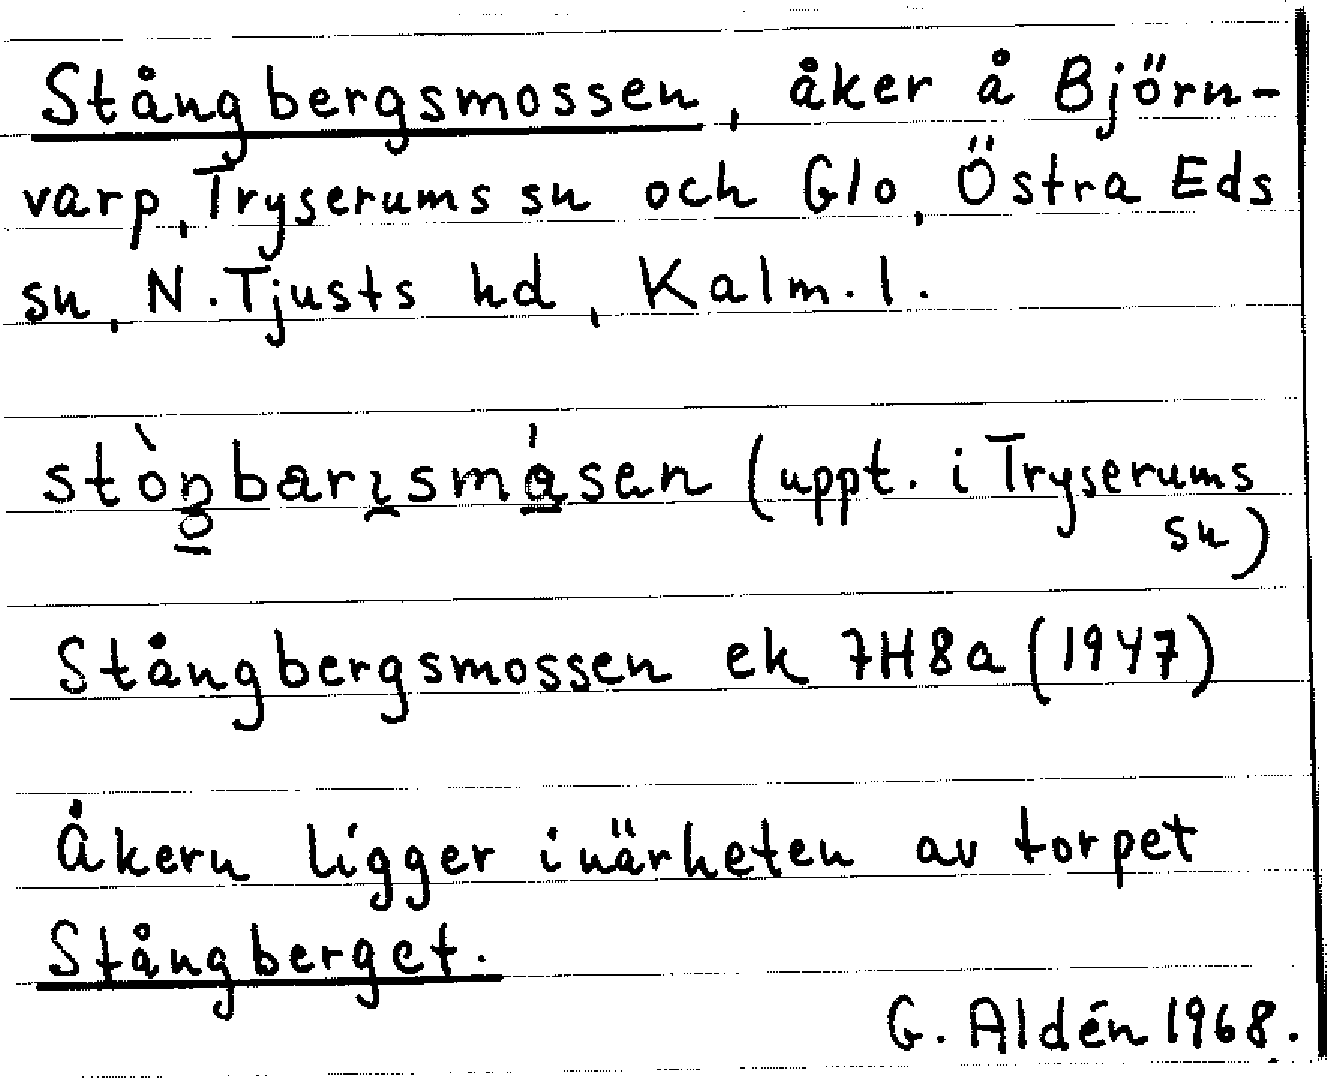 Stångbergsmossen, åker å Björn-
varp, Tryserums sn och Glo, Östra Eds
sn, N. Tjusts hd, Kalm. l.
(uppt. i Tryserums
sn)
Stångbergsmossen ek 7H8a (1947)
Åkern ligger i närheten av torpet
Stångberget.
G. Aldén 1968.